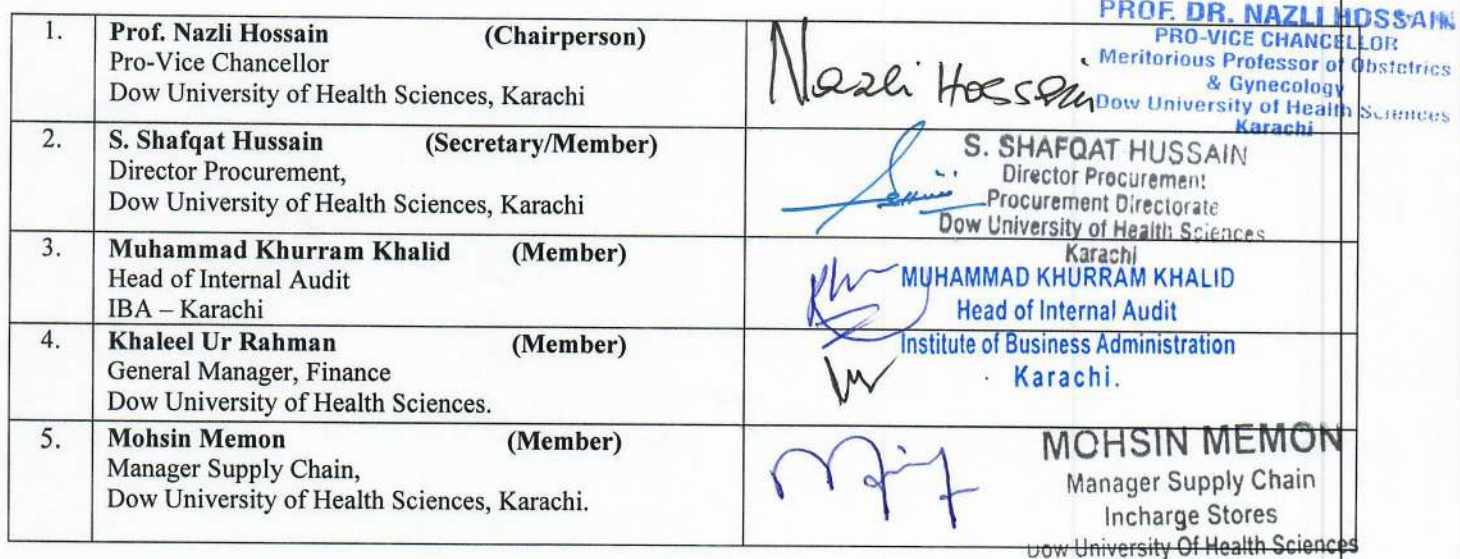 1. Prof. Nazli Hossain (Chairperson)
Pro-Vice Chancellor
Dow University of Health Sciences, Karachi
Nazli Hossain
PROF. DR. NAZLI HOSSAIN
PRO-VICE CHANCELLOR
Meritorious Professor of Obstetrics
& Gynecology
Dow University of Health Sciences
Karachi
2. S. Shafqat Hussain (Secretary/Member)
Director Procurement,
Dow University of Health Sciences, Karachi
S. SHAFQAT HUSSAIN
Director Procurement
Procurement Directorate
Dow University of Health Sciences
Karachi
3. Muhammad Khurram Khalid (Member)
Head of Internal Audit
IBA – Karachi
MUHAMMAD KHURRAM KHALID
Head of Internal Audit
Institute of Business Administration
Karachi.
4. Khaleel Ur Rahman (Member)
General Manager, Finance
Dow University of Health Sciences.
5. Mohsin Memon (Member)
Manager Supply Chain,
Dow University of Health Sciences, Karachi.
MOHSIN MEMON
Manager Supply Chain
Incharge Stores
Dow University Of Health Sciences